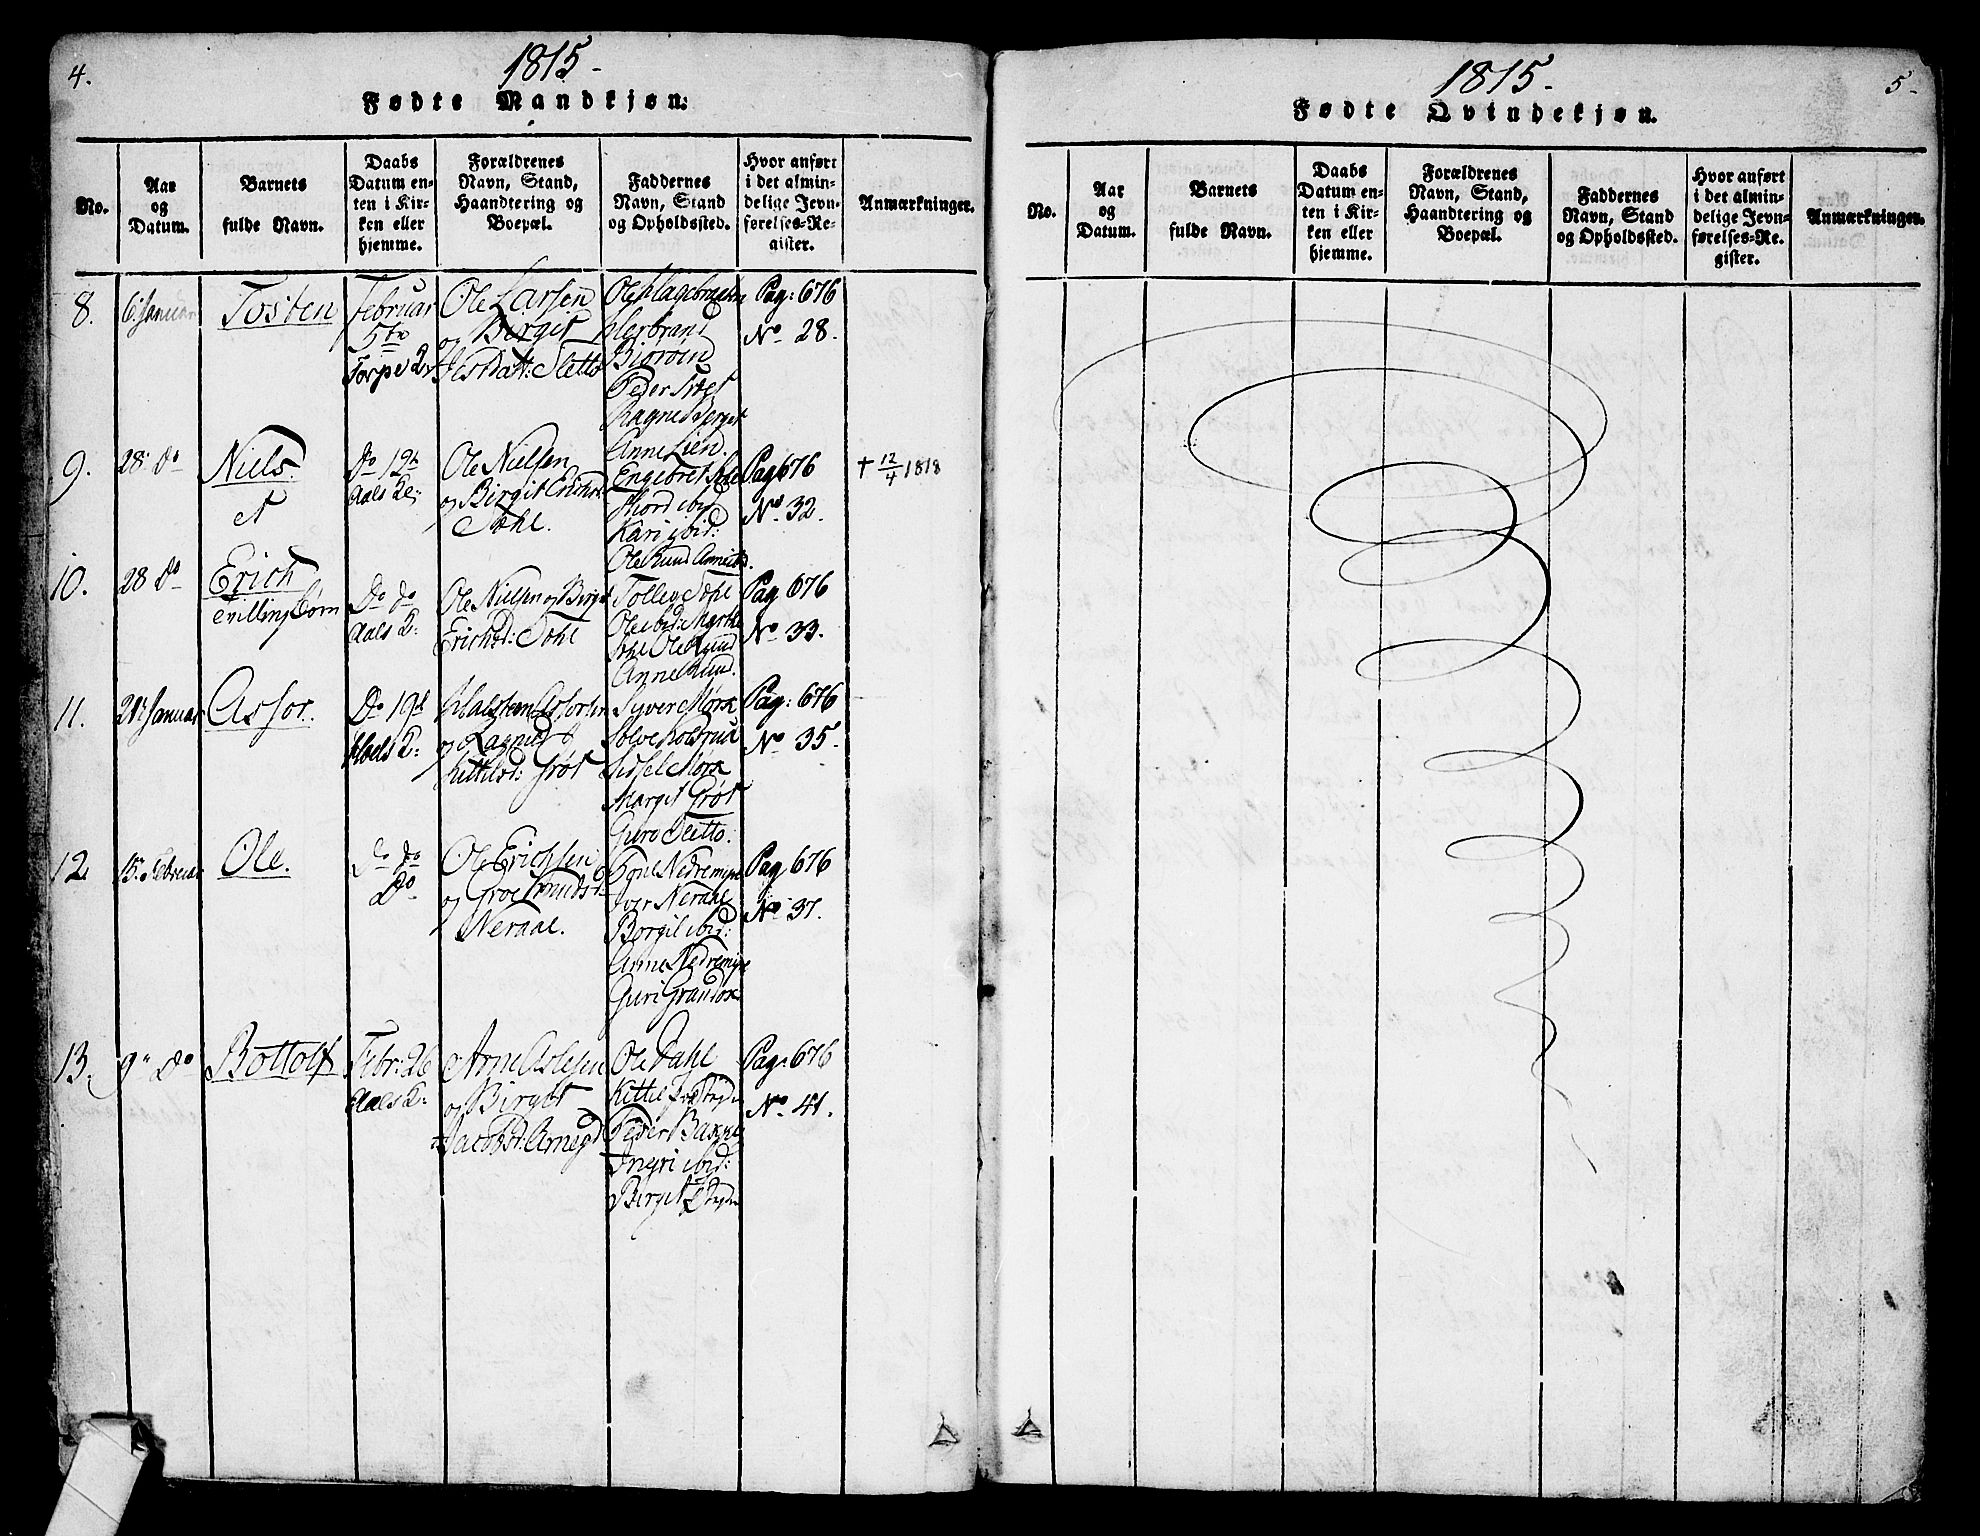 4.
1815.
Fødte Mandkjøn.
No.
Aar
og
Datum.
Barnets
fulde Navn.
Daabs
Datum en-
ten i Kir-
ken eller
hjemme.
Forældrenes
Navn, Stand,
Haandtering og
Boepæl.
Faddernes
Navn, Stand
og Opholdssted.
Hvor anført
i det almin-
delige Jevn-
førelses-Re-
gister.
Anmærkninger.
8.
6. Januar
Tosten
Februar
5te
Torpe 2:
Ole Larsen
og Birget
Slette
Ole
Herbrand
Biøröin
Peder
Ragne Berget
Pag: 676
No. 28.
9.
28. do
Niels.
et
Do 12te
Aals K:
Ole Nielsen
og Birgit Erichsd:
Tohl.
Anne Lien.
Engebret
ibid
Kari ibid:
Pag 676
No. 32.
† 12/4 1818
10.
28 do
Erich
tvillingbørn
Do do
Aals K:
Ole Nielsen og Birget
Erichsd: Tohl
Ole Rund
Tollev Tohl
Ole ibid:
Ole Rund
Anne Rund.
Pag 676
No. 33.
11.
Januar
Assor.
Do 19de
Aals K:
Halsteen Assorsen
og Ragnild
Kittilsd: Grøt
Syver Møra
Solve
Sidsel Møra
Margit Grøt
Guro Sletto.
Pag: 676
No. 35.
12.
15. Februar
Ole.
Do do
Do
Ole Erichsen
og Groe Knudsd:
Neraal.
Nedremyre
Iver Neraal
Borgil ibid:
Anne Nedremyre
Guri
Pag 676
No. 37.
13.
9. do
Bottolf
Febr: 26
Aals K:
Arne Aslesen
og Birget
Jacobsd: Arnegd
Ole Dahl
Kittil
Peder Bakke
Ingri ibid:
Birget
Pag: 676
No. 41.
1815.
5.
Fødte Qvindekjøn.
No.
Aar
og
Datum.
Barnets
fulde Navn.
Daabs
Datum en-
ten i Kir-
ken eller
hjemme.
Forældrenes
Navn, Stand,
Haandtering og
Boepæl.
Faddernes
Navn, Stand
og Opholdssted.
Hvor anført
i det almin-
delige Jevn-
førelses-Re-
gister.
Anmærkninger.